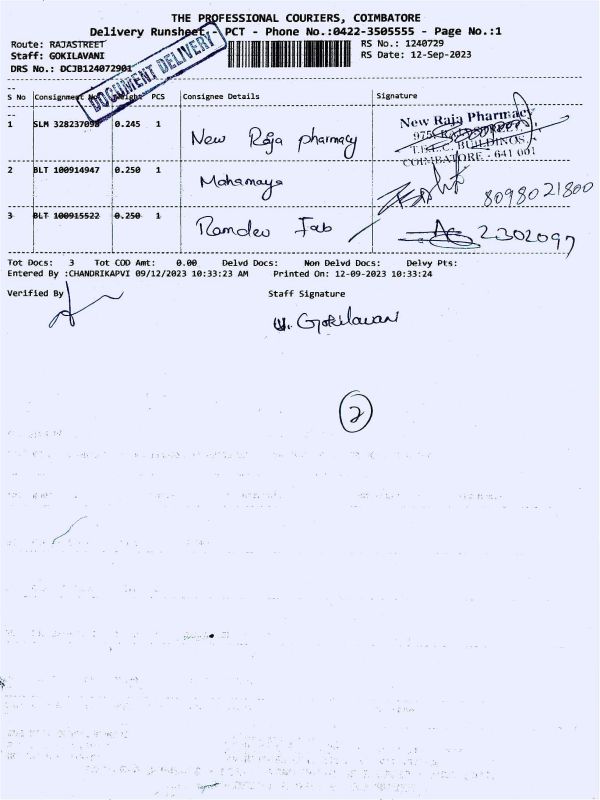 THE PROFESSIONAL COURIERS, COIMBATORE
Delivery Runsheet - PCT - Phone No.:0422-3505555 - Page No.:1
Route: RAJASTREET
RS No.: 1240729
Staff: GOKILAVANI
RS Date: 12-Sep-2023
DRS No.: DCJB124072901
DOCUMENT DELIVERY
S No Consignment No Weight PCS Consignee Details Signature
1 SLM 328237098 0.245 1 New Raja pharmacy
New Raja Pharmacy
975, RAJA STREET,
T.D.L.C. BUILDINGS
COIMBATORE - 641 001
2 BLT 100914947 0.250 1 Mahamaya 8098021800
3 BLT 100915522 0.250 1 Ramdev Fab 2302097
Tot Docs: 3 Tot COD Amt: 0.00 Delvd Docs: Non Delvd Docs: Delvy Pts:
Entered By :CHANDRIKAPVI 09/12/2023 10:33:23 AM Printed On: 12-09-2023 10:33:24
Verified By Staff Signature
V. Gokilavani
2